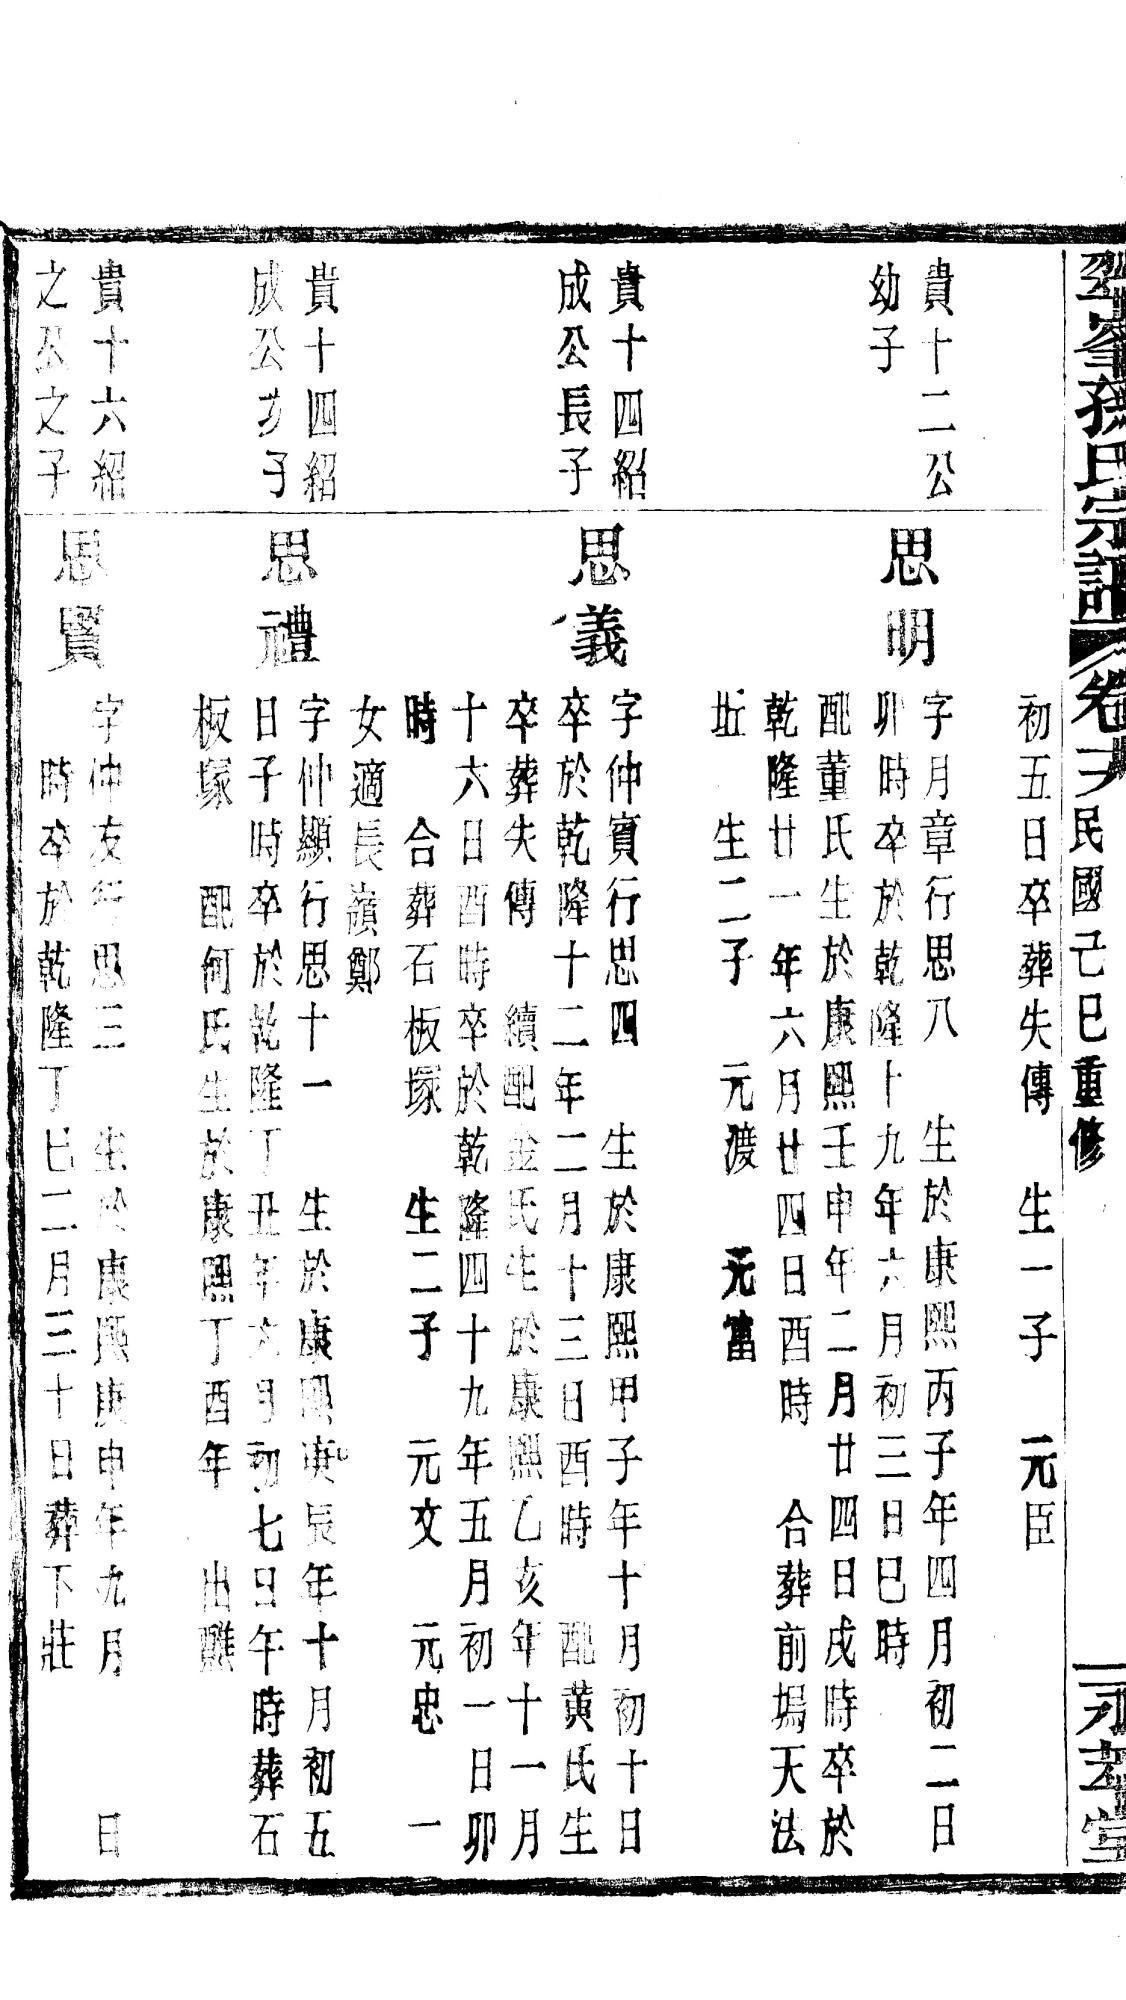 翠峯孫氏宗譜 卷十六 民國己巳重修 永孝堂
初五日卒葬失傳 生一子 元臣
貴十二公
幼子
思明
字月章行思八 生於康熙丙子年四月初二日
卯時卒於乾隆十九年六月初三日巳時
配董氏生於康熙壬申年二月廿四日戌時卒於
乾隆廿一年六月廿四日酉時 合葬前塢天法
坵 生二子 元渡 元富
貴十四紹
成公長子
思義
字仲賓行思四 生於康熙甲子年十月初十日
卒於乾隆十二年二月十三日酉時 配黄氏生
卒葬失傳 續配金氏生於康熙乙亥年十一月
十六日酉時卒於乾隆四十九年五月初一日卯
時 合葬石板塚 生二子 元文 元忠 一
女適長嶺鄭
貴十四紹
成公次子
思禮
字仲顯行思十一 生於康熙庚辰年十月初五
日子時卒於乾隆丁丑年六月初七日午時葬石
板塚 配何氏生於康熙丁酉年 出醮
貴十六紹
之公之子
思賢
字仲友行思三 生於康熙庚申年九月 日
時卒於乾隆丁巳二月三十日葬下莊